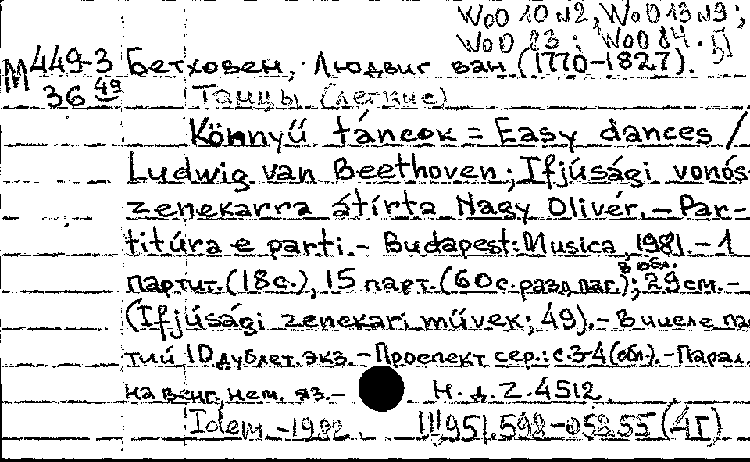 WoO 10 N2, WoO 13 N9;
WoO 83; WoO 84. 51
М 449-3 Бетховен, Людвиг ван (1770-1827).
36 49 Танцы (легкие)
Könnyű táncok = Easy dances /
Ludwig van Beethoven; Ifjúsági vonós-
zenekarra átírta Nagy Olivér. – Par-
titúra e parti. – Budapest: Musica, 1981. – 1
партит. (18 с.), 15 парт. (60 с. разд. паг.) в обл.; 29 см. –
(Ifjúsági zenekari művek; 49). – В числе пар-
тий 10 дублет. экз. – Проспект сер.: с. 3-4 (обл.). – Парал.
на венг., нем. яз. – Н. д. Z. 4512.
Idem. – 1982.